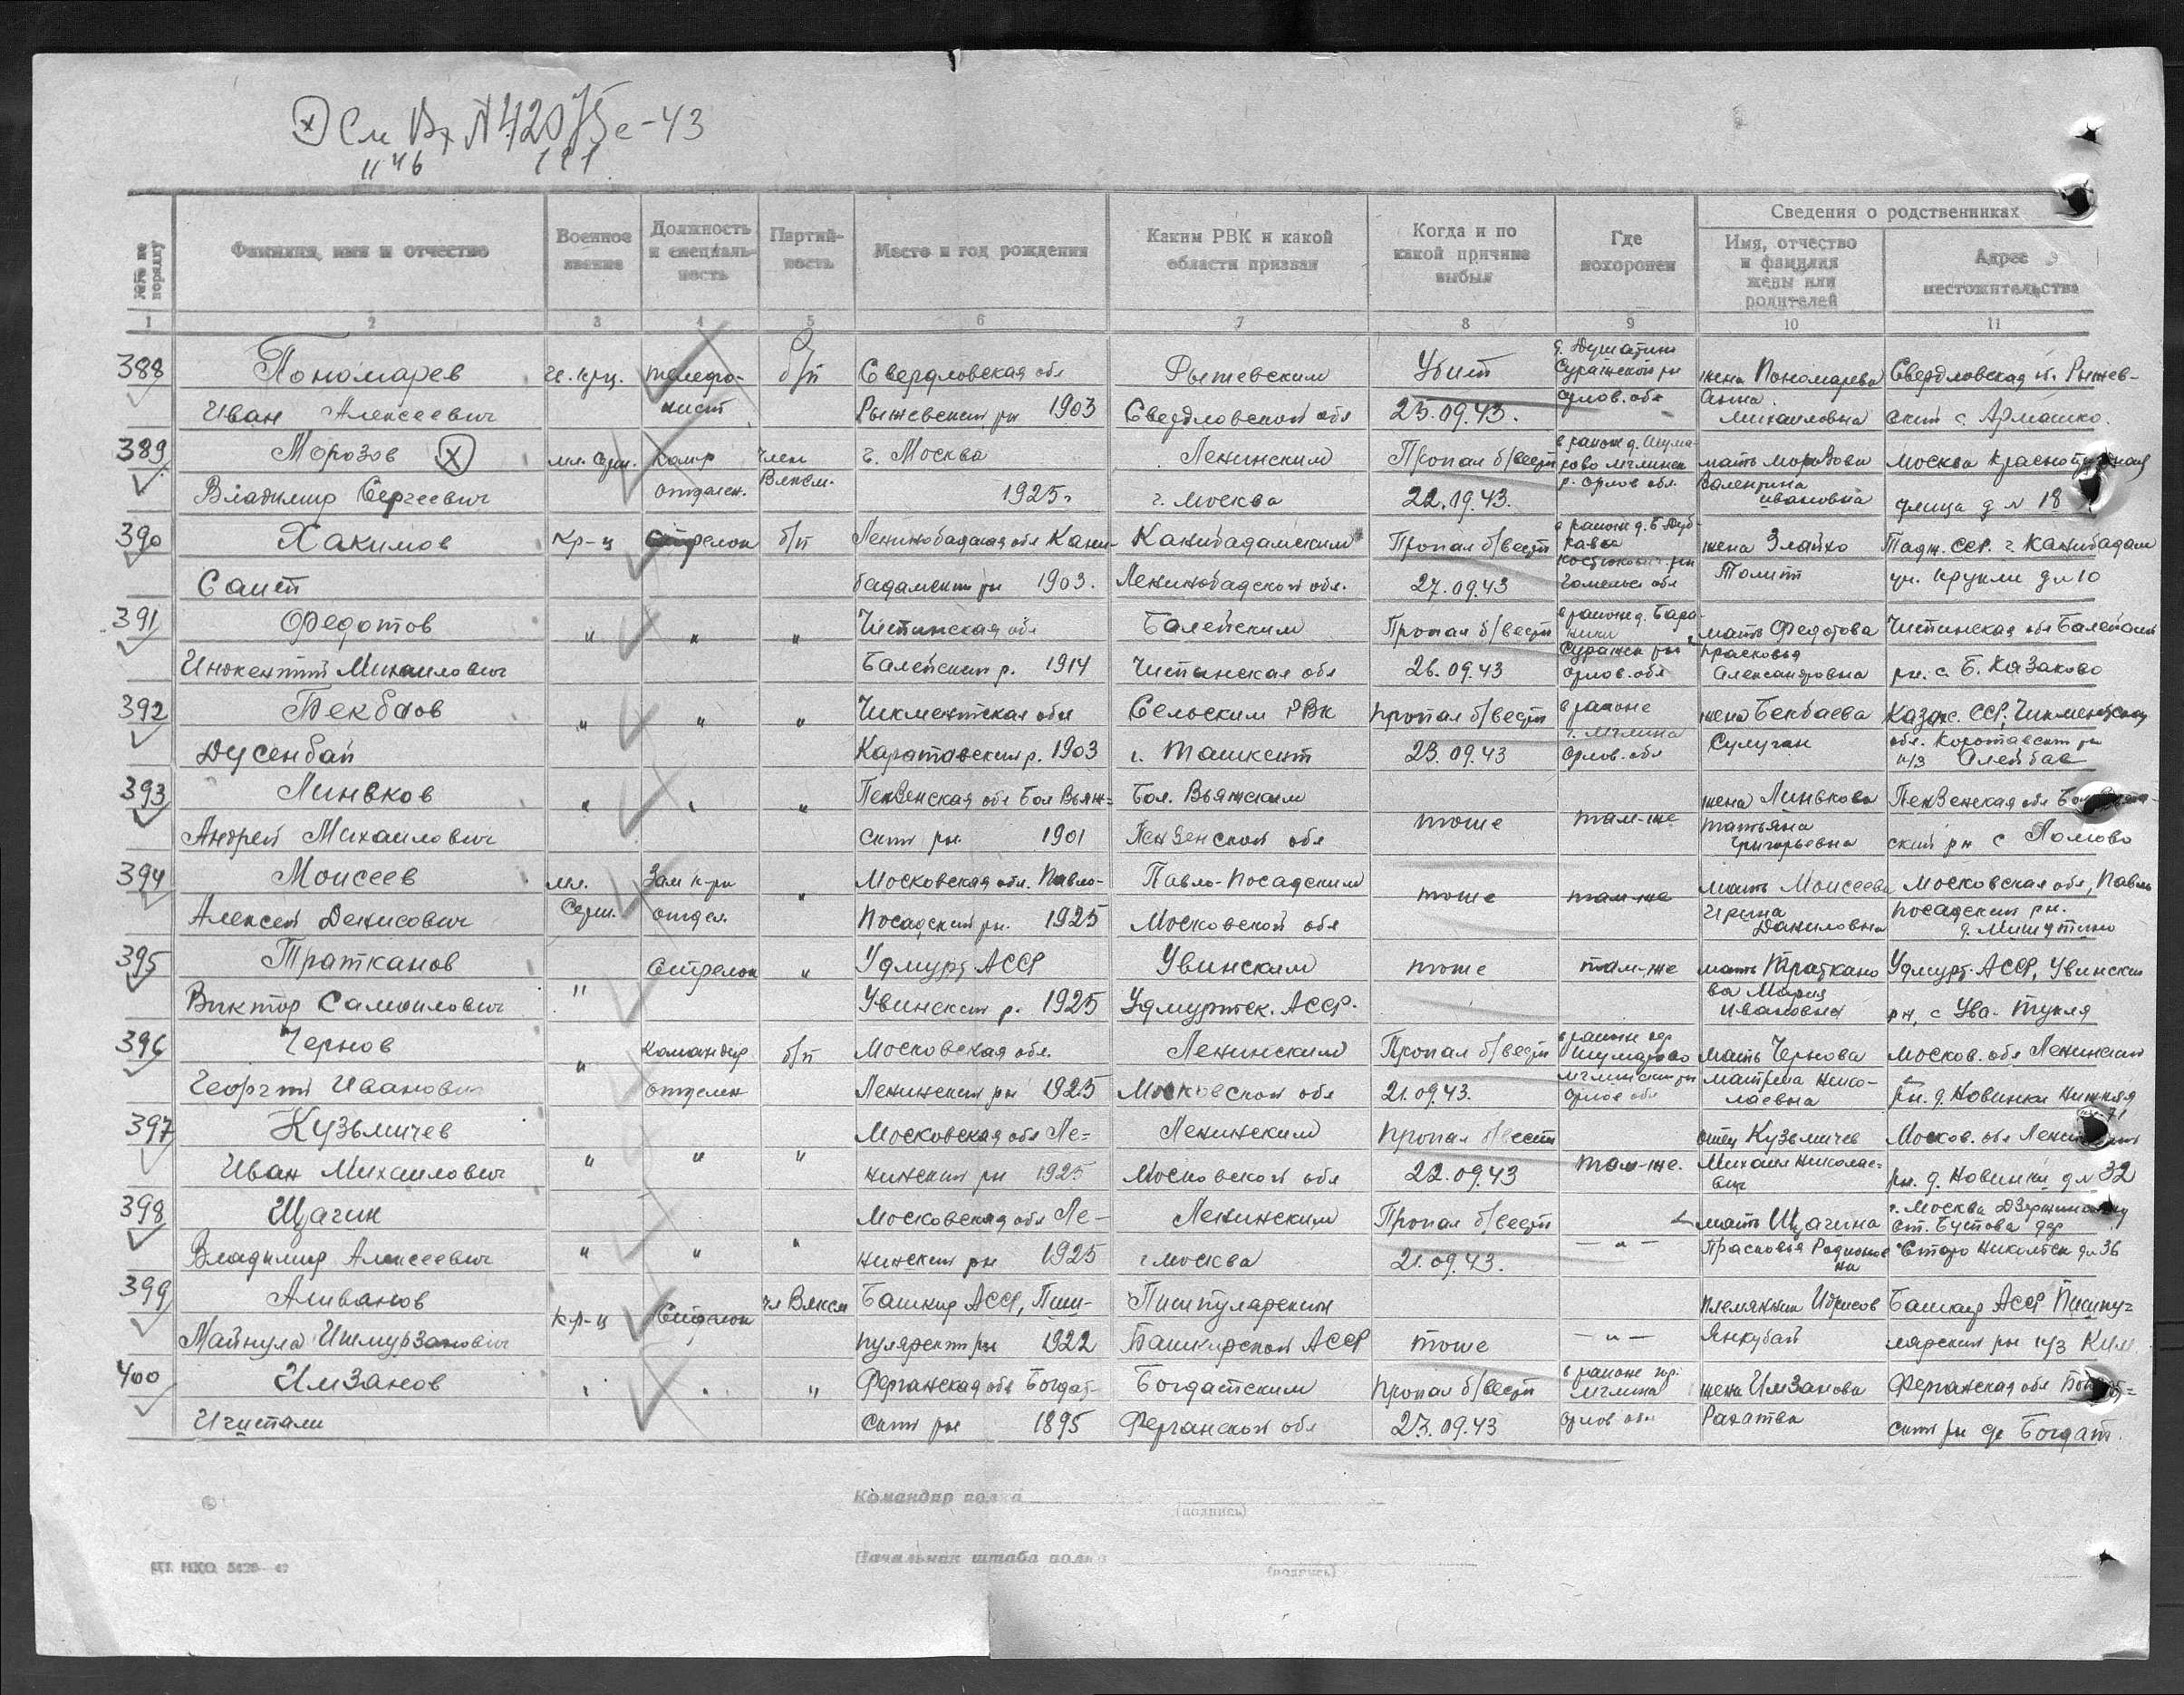 См Вх N42075с-43
Сведения о родственниках
№№ по порядку
Фамилия, имя и отчество
Военное звание
Должность и специальность
Партийность
Место и год рождения
Каким РВК и какой области призван
Когда и по какой причине выбыл
Где похоронен
Имя, отчество и фамилия жены или родителей
Адрес местожительства
1 2 3 4 5 6 7 8 9 10 11
388 Пономарев телефо- б/п Свердловская обл Рыжевским Убит Суражского рн жена Пономарева Свердловская об. Рыжев-
Иван Алексеевич нист Рыжевский рн 1903 Свердловской обл 25.09.43. Орлов. обл Анна Михаиловна ский с.
389 Морозов мл. серж. Комр член г. Москва Ленинским Пропал б/вести в районе д. Шума- мать Морозова Москва
Владимир Сергеевич отделен. Влксм. 1925г г. Москва 22.09.43. р. Орлов обл. Валентина ивановна улица д N 18
390 Хакимов кр-ц Стрелок б/п Ленинобадская обл Кани- Канибадамским Пропал б/вести в районе жена Тадж. ССР. г. Канибадам
Саит бадамский рн 1903. Ленинобадской обл. 27.09.43 Гомельс обл ул. дN10
391 Федотов " " " Читинская обл Балейским Пропал б/вести в районе д. мать Федотова Читинская обл Балейский
Инокентий Михаилович Балейский р. 1914 Читинская обл 26.09.43 Суражск рн Орлов. обл Прасковья Александровна рн. с. Б. Казаково
392 Бекбаов " " " Чикментская обл Сельским РВК пропал б/вести в районе жена Бекбаева Казах. ССР, Чикментскую
Дусенбай Каратавский р. 1903 г. Ташкент 23.09.43 г. Мглина Орлов. обл Сулухан обл. Коротавский рн
393 Линьков " " " Пензенская обл Бол Вьяж= Бол. Вьяжским тоже там-же жена Линькова Пензенская обл
Андрей Михаилович ский рн. 1901 Пензенской обл Татьяна Григорьевна ский рн с
394 Моисеев мл. Зам к-ра " Московская обл. Павло- Павло-Посадским тоже там-же мать Моисеева Московская обл, Павло
Алексей Денисович Серж. отдел. Посадский рн. 1925 Московской обл Ирина Даниловна посадский рн. д.
395 Тратканов " Стрелок " Удмурт АССР Увинским тоже там-же мать Траткано
Виктор Самоилович Увинский р. 1925 Удмуртск. АССР. ва Мария Ивановна Удмурт. АССР, Увинский рн, с Ува-Тукля
396 Чернов " командир б/п Московская обл. Ленинским Пропал б/вести в районе дер мать Чернова Москов. обл Ленинский
Георгий Иванович отделен Ленинский рн 1925 Московской обл 21.09.43. Шумарово Мглинский рн Орлов обл Матрена Нико-лаевна рн. д. Новинки Нижняя
397 Кузьмичев Московская обл Ле= Ленинским пропал б/вести отец Кузьмичев Москов. обл
Иван Михаилович " " " нинский рн 1925 Московской обл 22.09.43 там-же. Михаил Николае-вич рн. д. Новинки дN32
398 Щагин Московская обл Ле- Ленинским Пропал б/вести мать Щагина г. Москва
Владимир Алексеевич " " " нинский рн 1925 г Москва 21.09.43. — " — Прасковья Родионов на ст. Бутова дер дN36
399 Аливанов кр-ц Стрелок чл Влксм Башкир АССР, Пиш- Пишпулярским племянник Идрисов Башкир АССР Пишпу=
Майнула Ишмурзанович пулярский рн 1922 Башкирской АССР тоже — " — Янкубай лярский рн
400 Имзанов " " " Ферганская обл Богдат- Богдатским пропал б/вести в районе гор. Мглина жена Имзанова Ферганская обл
Игистали ский рн 1895 Ферганской обл 23.09.43 Орлов обл ский рн
Командир полка
(подпись)
Начальник штаба полка
(подпись)